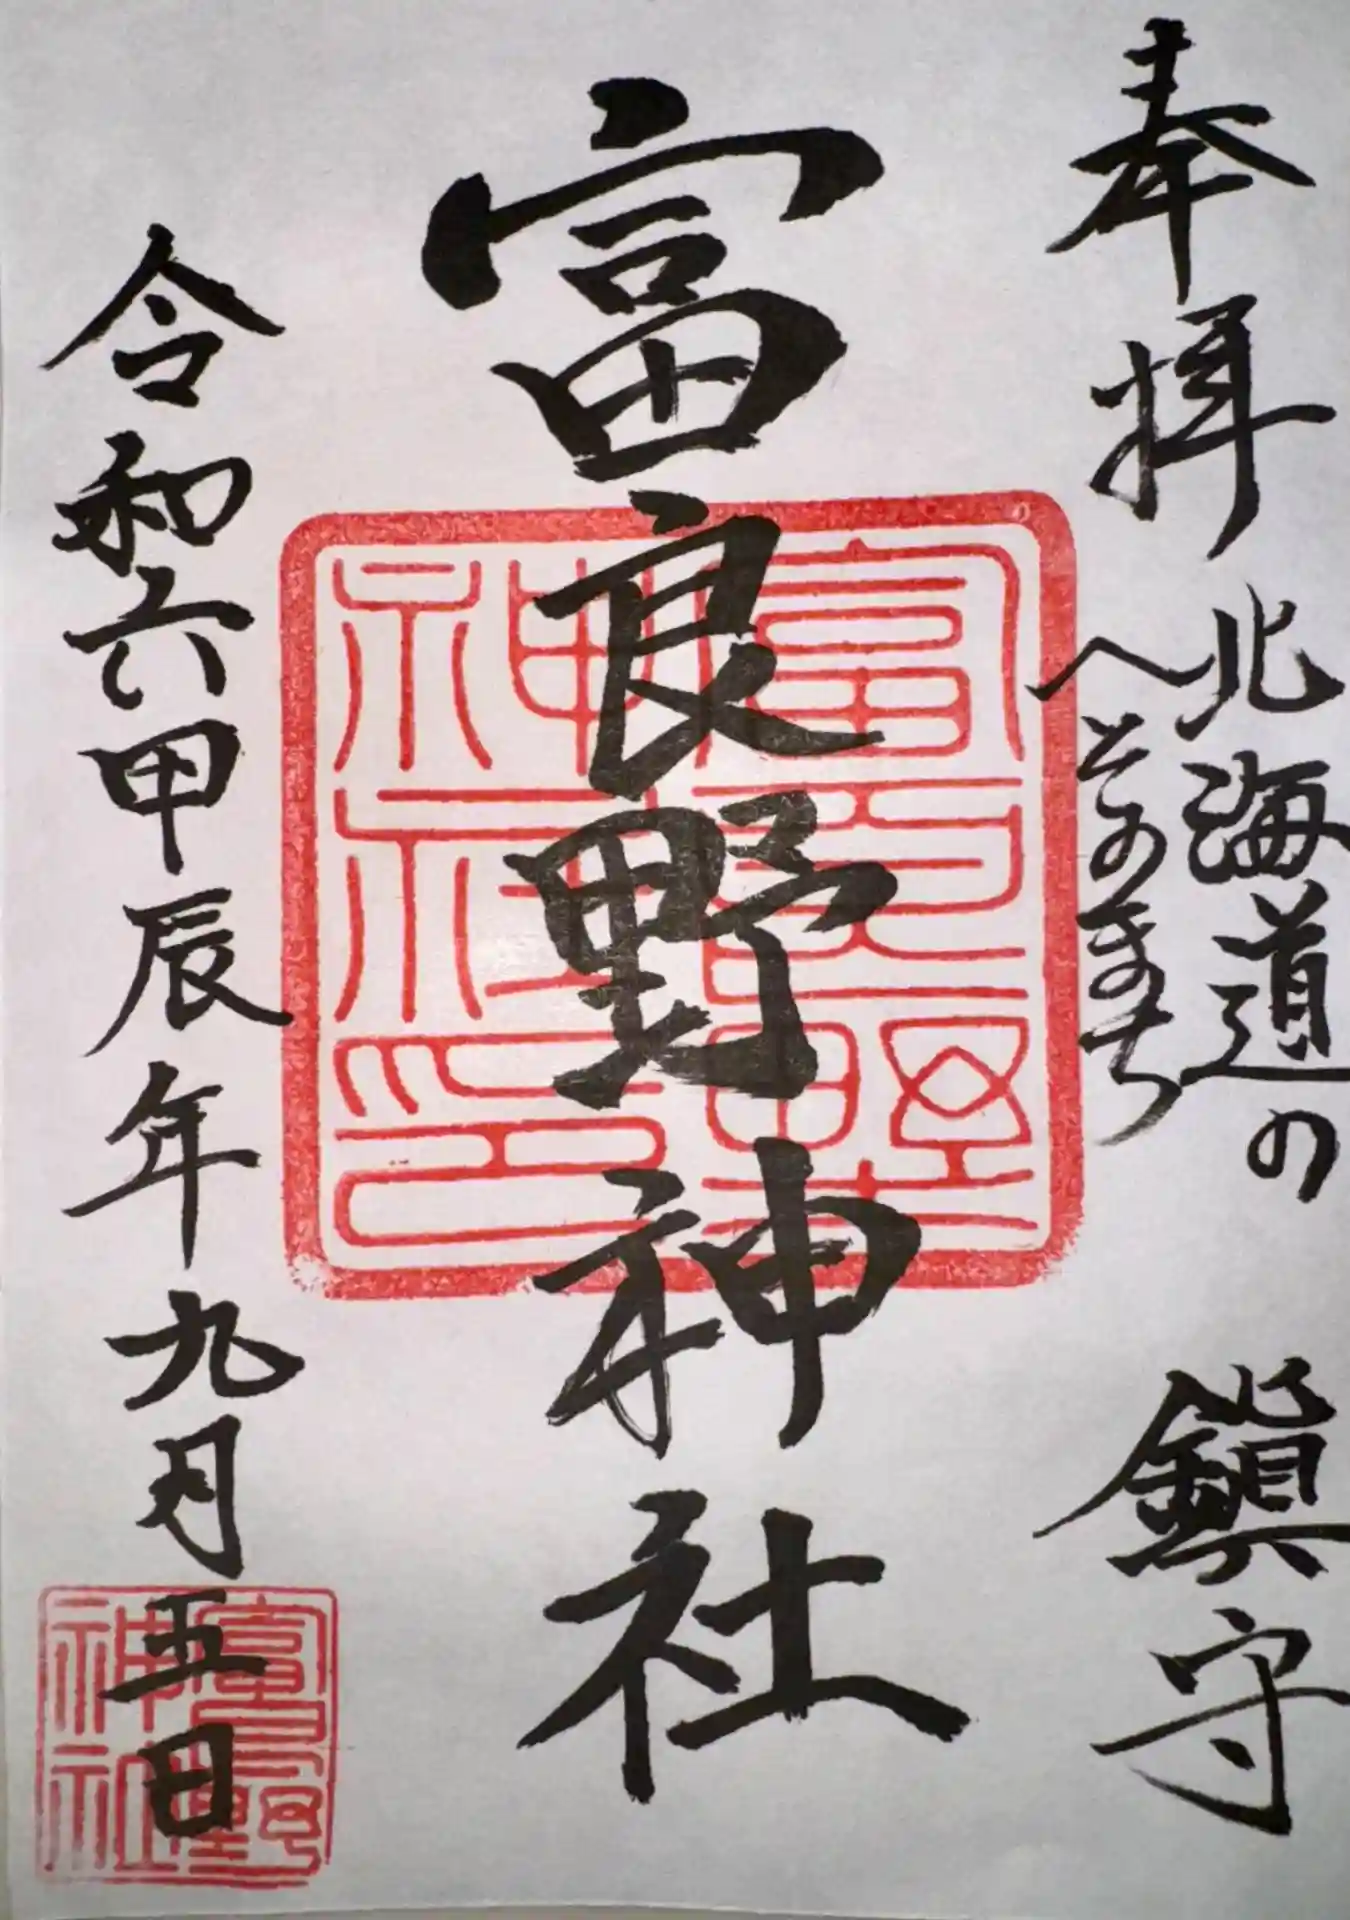 奉拝 北海道の
へそのまち
鎮守
富良野神社
富良野神社印
令和六甲辰年九月五日
富良野神社